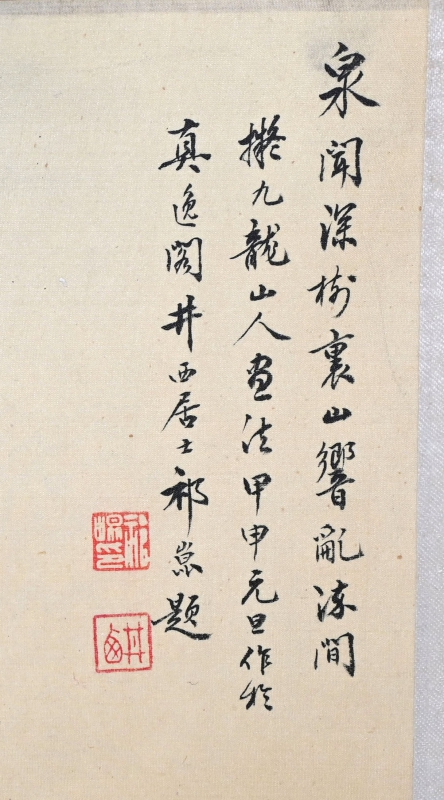 泉聞深樹裏山響亂流間
擬九龍山人畫法甲申元旦作於
真逸閣井西居士祁崑題
井西